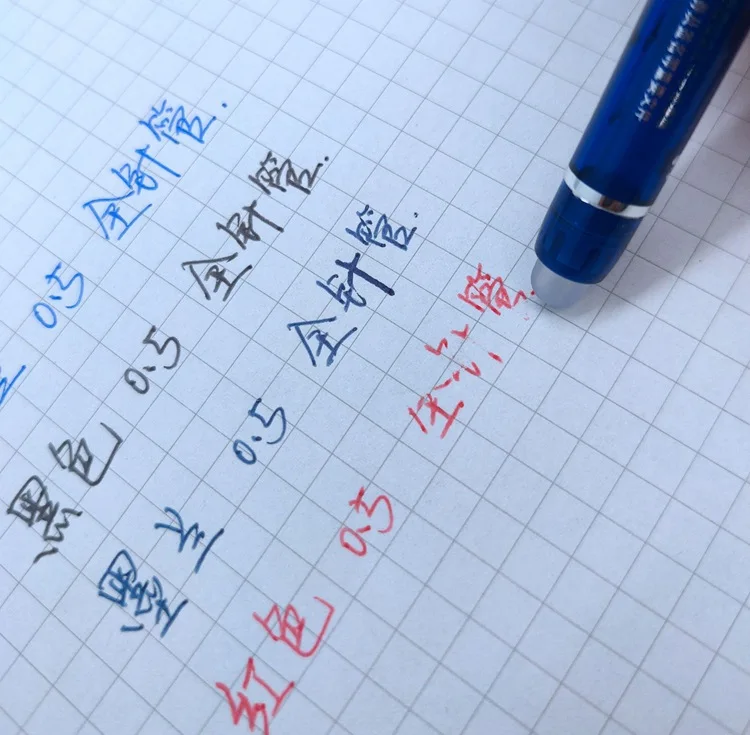 0.5 全针管.
黑色 0.5 全针管.
墨兰 0.5 全针管.
红色 0.5 全管.